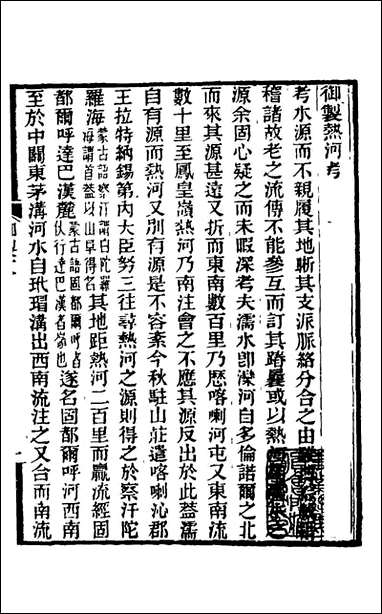 御製熱河考
考水源而不親履其地晰其支派脈絡分合之由
稽諸故老之流傳不能參互而訂其踳襲或以熱
源余固心疑之而未暇深考夫濡水卽灤河自多倫諾爾之北
而來其源甚遠又折而東南數百里乃歷喀喇河屯又東南流
數十里至鳳皇嶺熱河乃南注會之不應其源反出於此蓋濡
自有源而熱河又別有源是不容紊今秋駐山莊遣喀喇沁郡
王拉特納錫第內大臣努三往尋熱河之源則得之於察汗陀
羅海蒙古語察汗謂白陀羅海謂首蓋以山阜得名其地距熱河二百里而贏流經固
都爾呼達巴漢麓蒙古語固都爾呼者伏行達巴漢者嶺也遂名固都爾呼河西南
至於中關東茅溝河水自玳瑁溝出西南流注之又合而南流